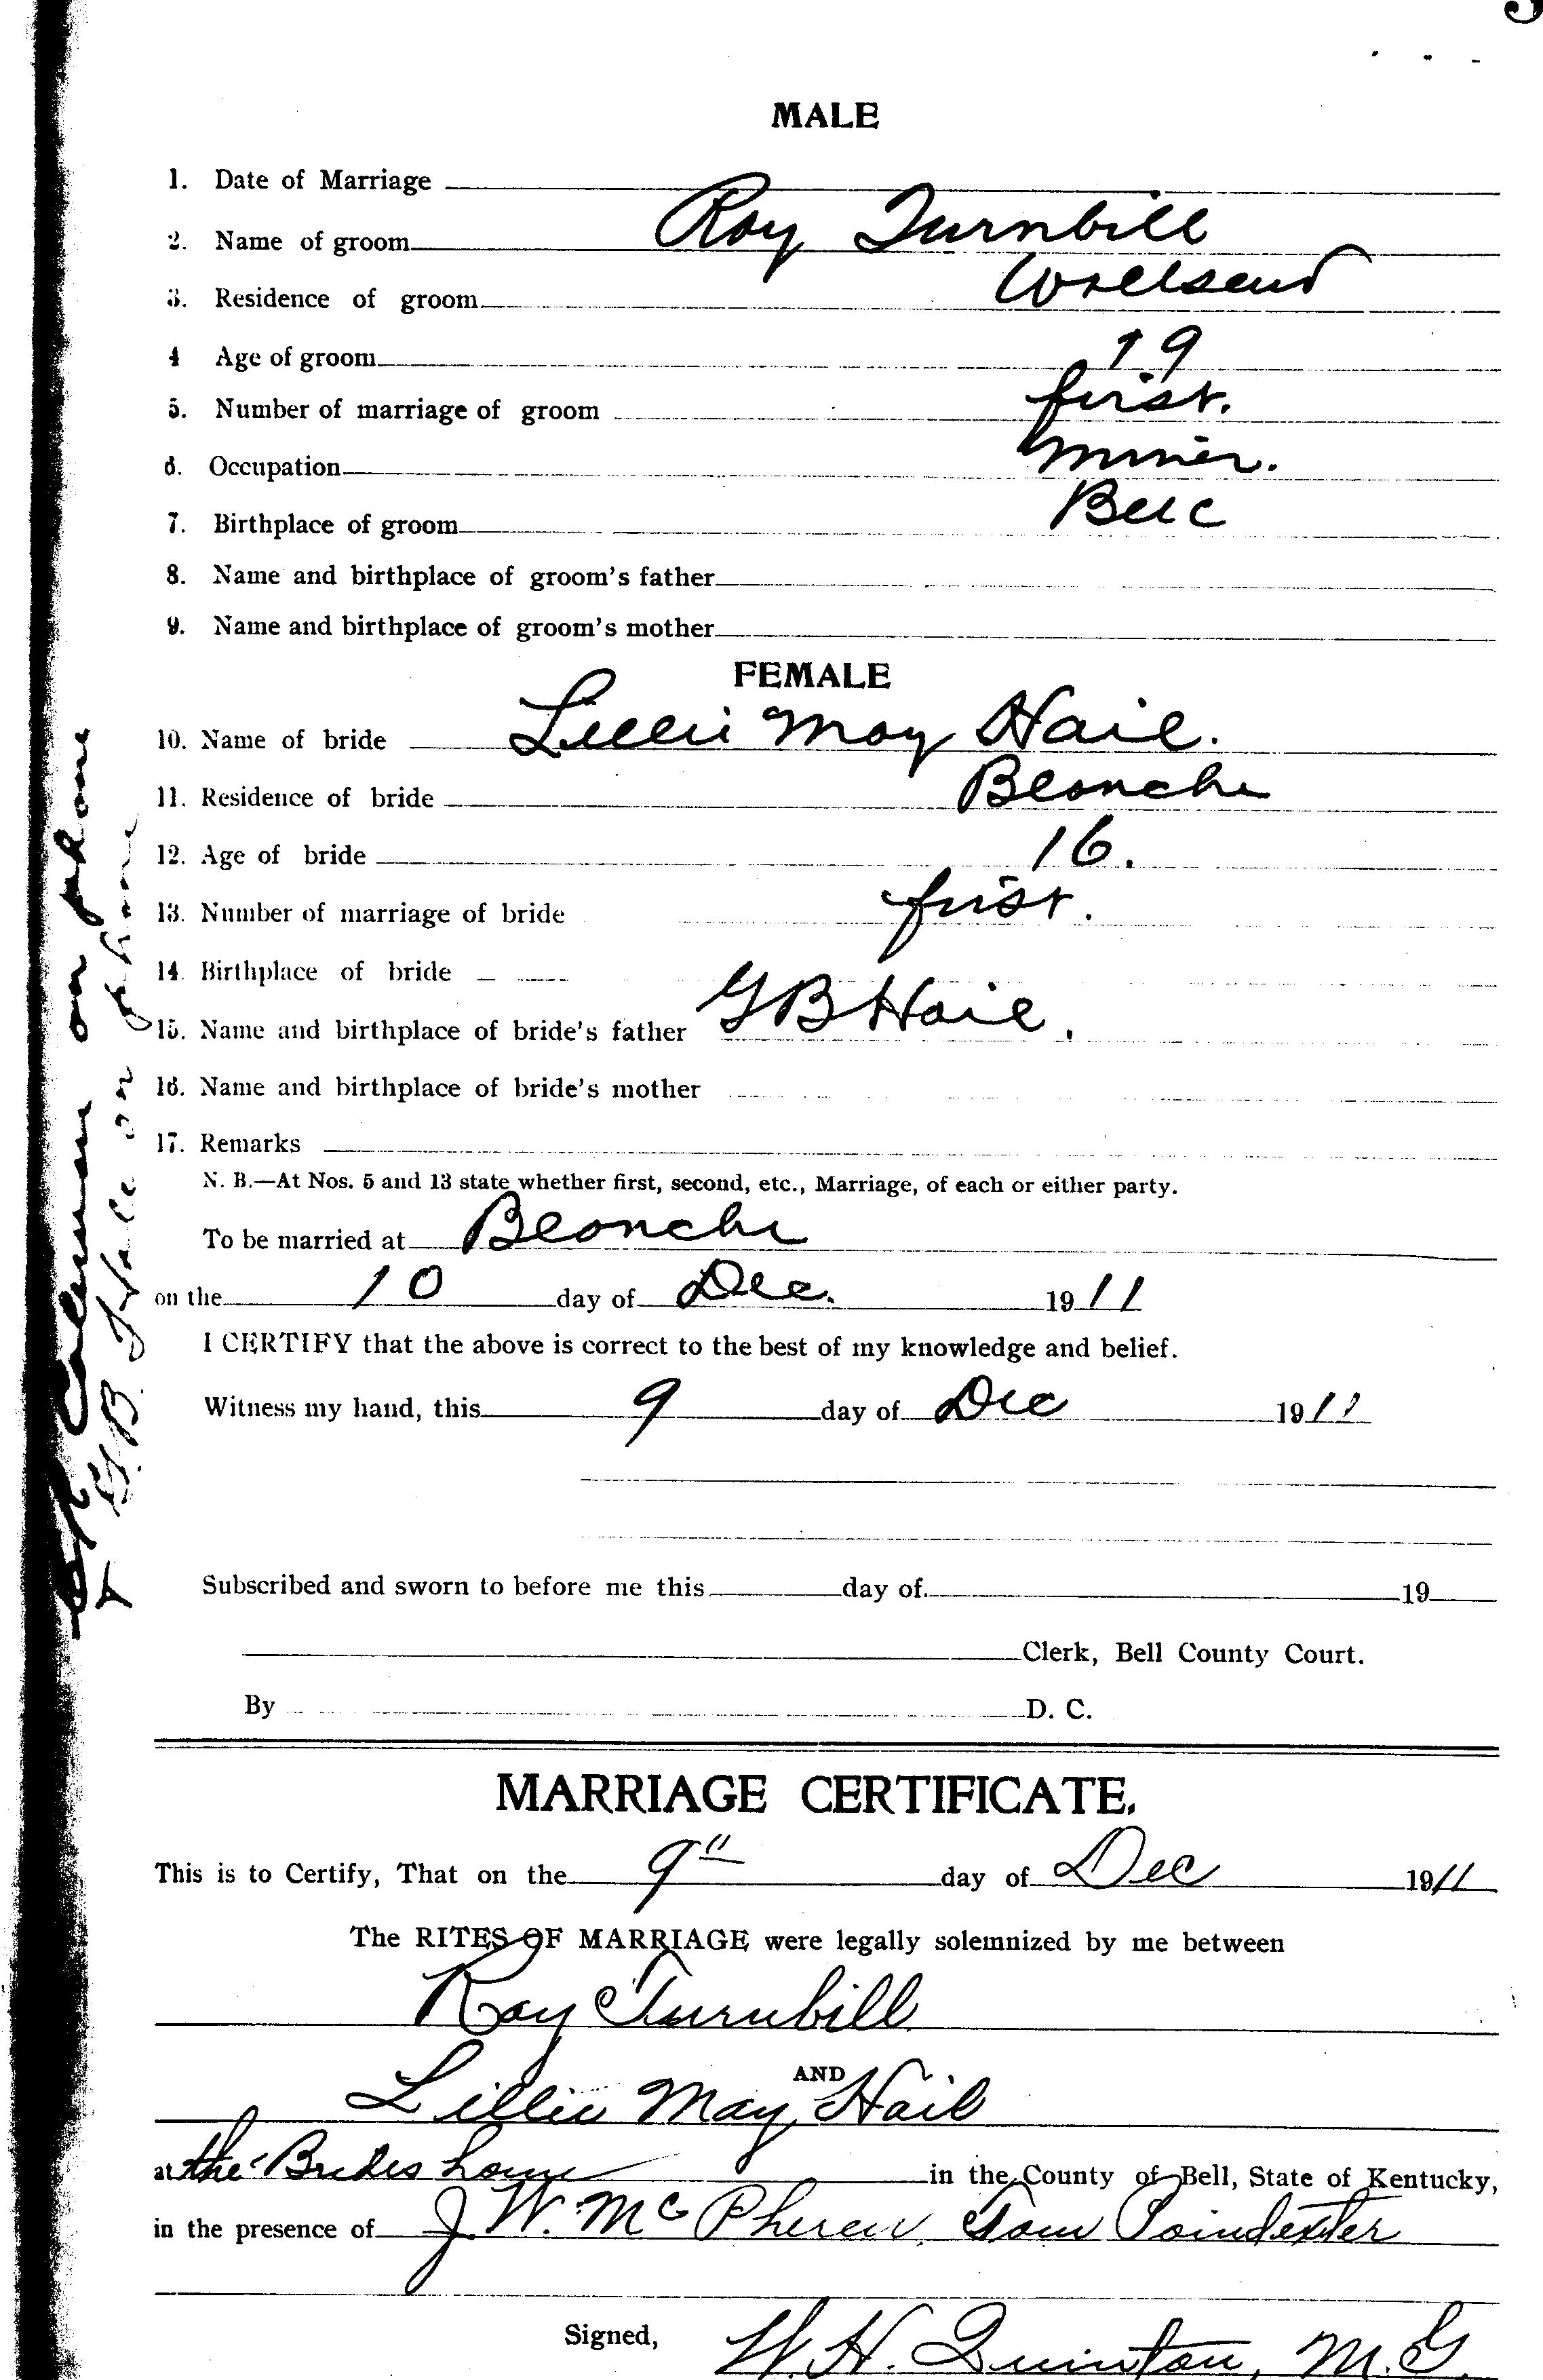 MALE
1. Date of Marriage
2. Name of groom Roy Turnbill
3. Residence of groom Wallsend
4 Age of groom 19
5. Number of marriage of groom first.
6. Occupation miner.
7. Birthplace of groom Bell
8. Name and birthplace of groom's father
9. Name and birthplace of groom's mother
FEMALE
10. Name of bride Lillie May Hail.
11. Residence of bride Blanche
12. Age of bride 16.
13. Number of marriage of bride first.
14. Birthplace of bride
15. Name and birthplace of bride's father G B Hail.
16. Name and birthplace of bride's mother
17. Remarks
N. B.—At Nos. 5 and 13 state whether first, second, etc., Marriage, of each or either party.
To be married at Blanche
on the 10 day of Dec. 1911
I CERTIFY that the above is correct to the best of my knowledge and belief.
Witness my hand, this 9 day of Dec 1911
Subscribed and sworn to before me this day of 19
Clerk, Bell County Court.
By D. C.
MARRIAGE CERTIFICATE.
This is to Certify, That on the 9th day of Dec 1911
The RITES OF MARRIAGE were legally solemnized by me between
Roy Turnbill
AND
Lillie May Hail
at the Brides home in the County of Bell, State of Kentucky,
in the presence of J. W. McPheren, Tom Poindexter
Signed, W. H. Quinton, M. G.
Coleman on phone
G. B. Hale on phone